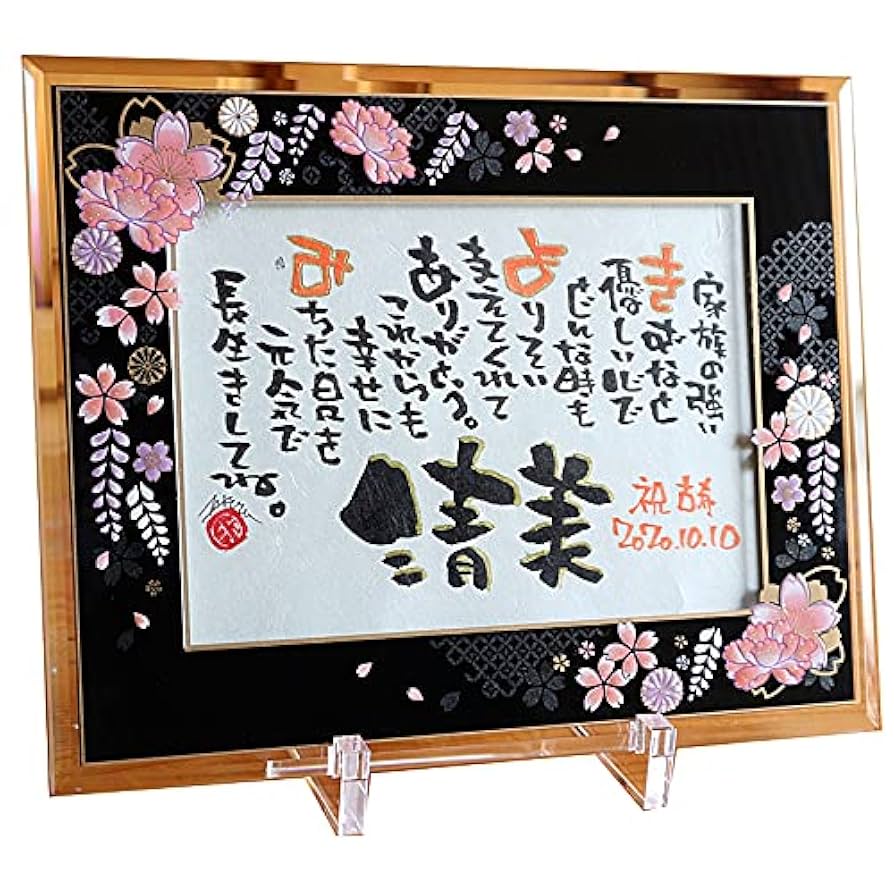 家族の強い
きずなと
優しい心で
どんな時も
よりそい
支えてくれて
ありがとう。
これからも
幸せに
みちた日を
元気で
長生きしてね。
清美
祝古希
2020.10.10